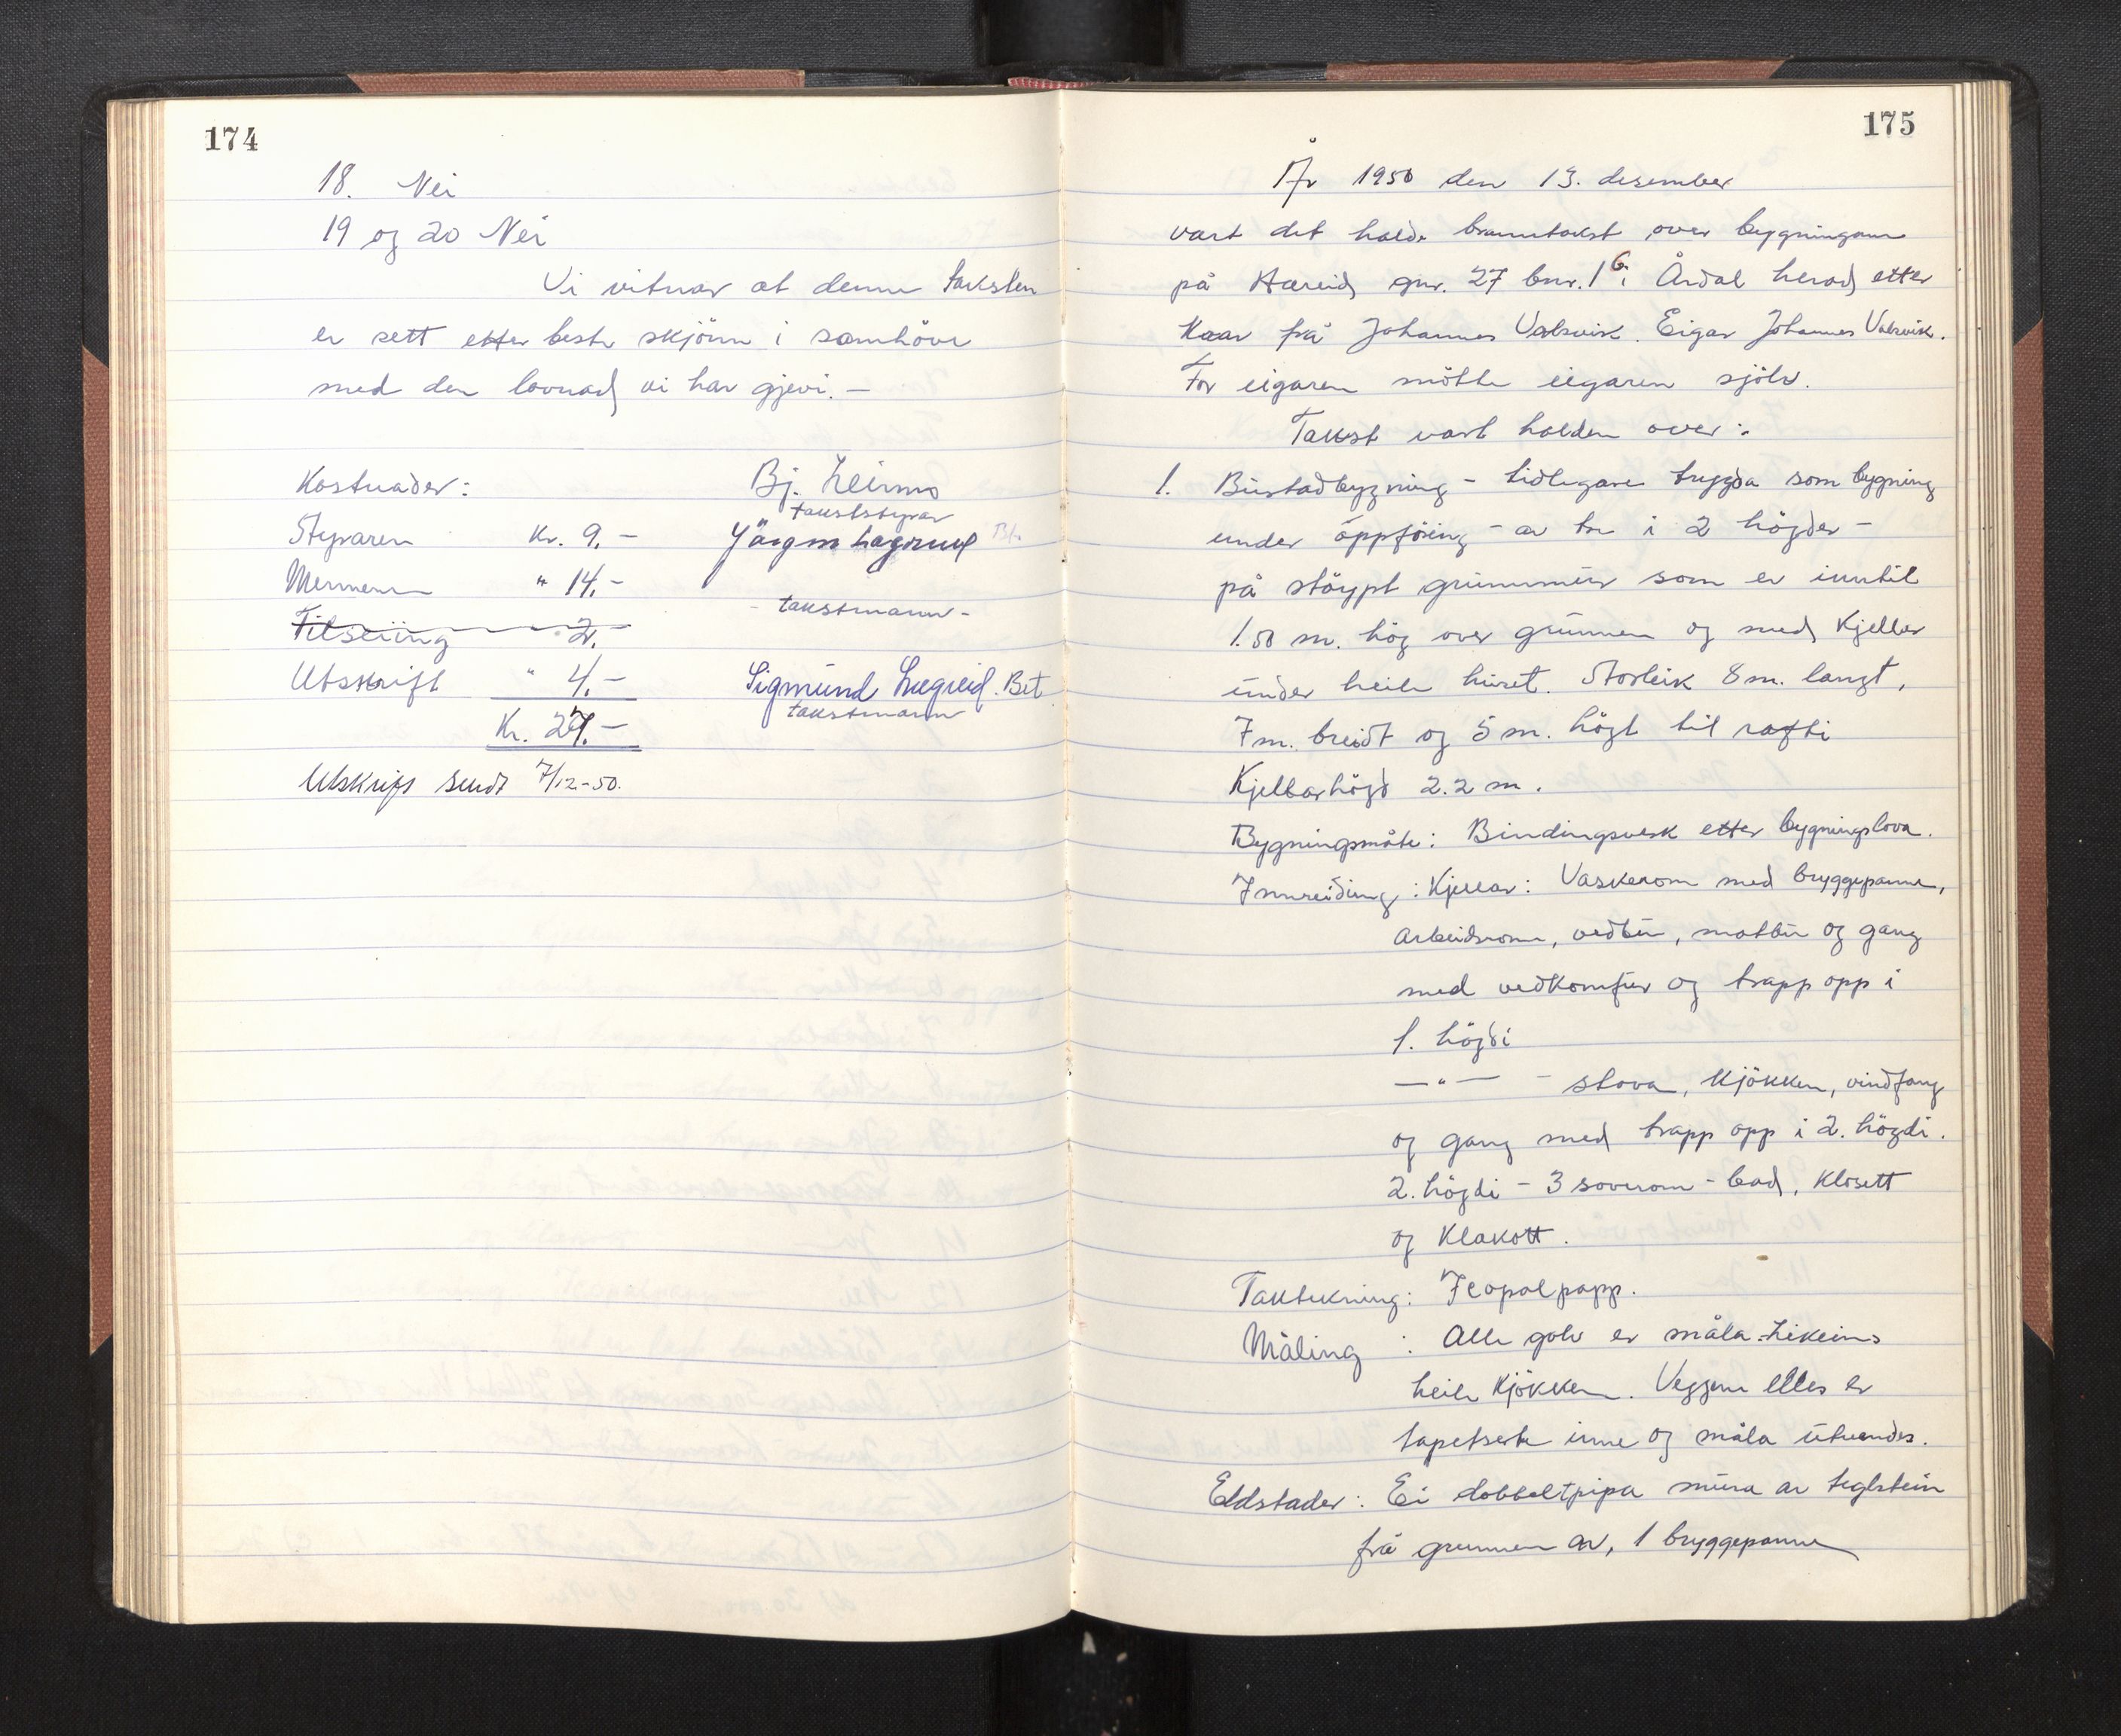 174
18. Nei
19 og 20 Nei
Vi vitnar at denne taksten
er sett etter beste skjönn i samhöve
med den lovnad vi har gjevi. —
Kostnader:
Bj. Leirmo
takststyrar
Styraren Kr. 9.–
Mennene " 14.–
- takstmann -
Tilseiing 2.–
Utskrift " 4.–
Sigmund Lægreid. Bet
takstmann
Kr. 27.–
Utskrift sendt 7/12-50.
175
År 1950 den 13. desember
vart det halde branntakst over bygningane
på Hæreid gnr. 27 bnr. 16 i Årdal herad etter
Krav frå Johannes Valsvik. Eigar Johannes Valsvik.
For eigaren mötte eigaren sjölv.
Takst vart halden over:
1. Bustadbygning – tidlegare trygda som bygning
under oppföring – av tre i 2 högder –
på stöypt grunnmur som er inntil
1.50 m. hög over grunnen og med Kjeller
under heile huset. Storleik 8 m. langt,
7 m. breidt og 5 m. högt til rafti
Kjellarhögd 2.2 m.
Bygningsmåte: Bindingsverk etter bygningslova.
Innreiding: Kjellar: Vaskerom med bryggepanne,
arbeidsrom, vedbu, matbu og gang
med vedkomfur og trapp opp i
1. högdi
— " — – stova, Kjökken, vindfang
og gang med trapp opp i 2. högdi.
2. högdi – 3 soverom – bad, Klosett
og Klekott.
Taktekning: Icopalpapp.
Måling: Alle golv er måla. Likeins
heile Kjökken. Veggene elles er
tapetserte inne og måla utvendes.
Eldstader: Ei dobbeltpipa mura av teglstein
frå grunnen av, 1 bryggepanne